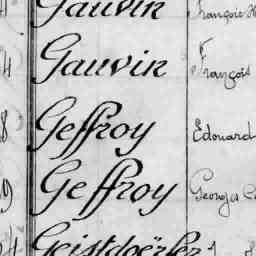 Gauvin François
Gauvin François
Geffroy Edouard
Geffroy Georges
Geistdoërfer